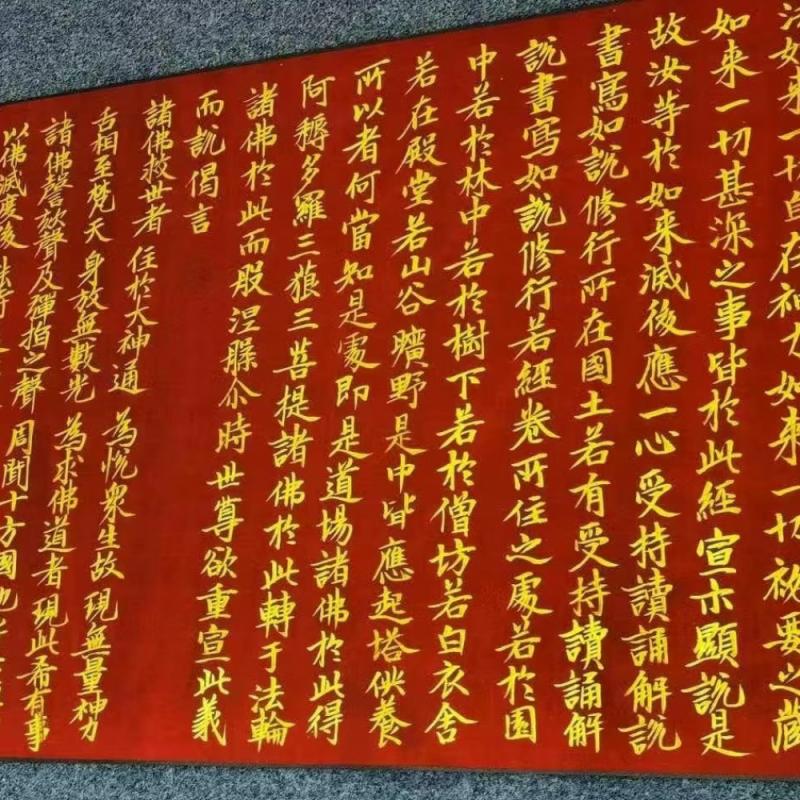 如来一切自在神力如来一切祕要之藏
如来一切甚深之事皆於此經宣示顯說是
故汝等於如来滅後應一心受持讀誦解說
書寫如說修行所在國土若有受持讀誦解
說書寫如說修行若經卷所住之處若於園
中若於林中若於樹下若於僧坊若白衣舍
若在殿堂若山谷曠野是中皆應起塔供養
所以者何當知是處即是道場諸佛於此得
阿耨多羅三藐三菩提諸佛於此轉于法輪
諸佛於此而般涅槃尒時世尊欲重宣此義
而說偈言
諸佛救世者 住於大神通 為悅衆生故 現無量神力
舌相至梵天 身放無數光 為求佛道者 現此希有事
諸佛謦欬聲 及彈指之聲 周聞十方國 地
以佛滅度後